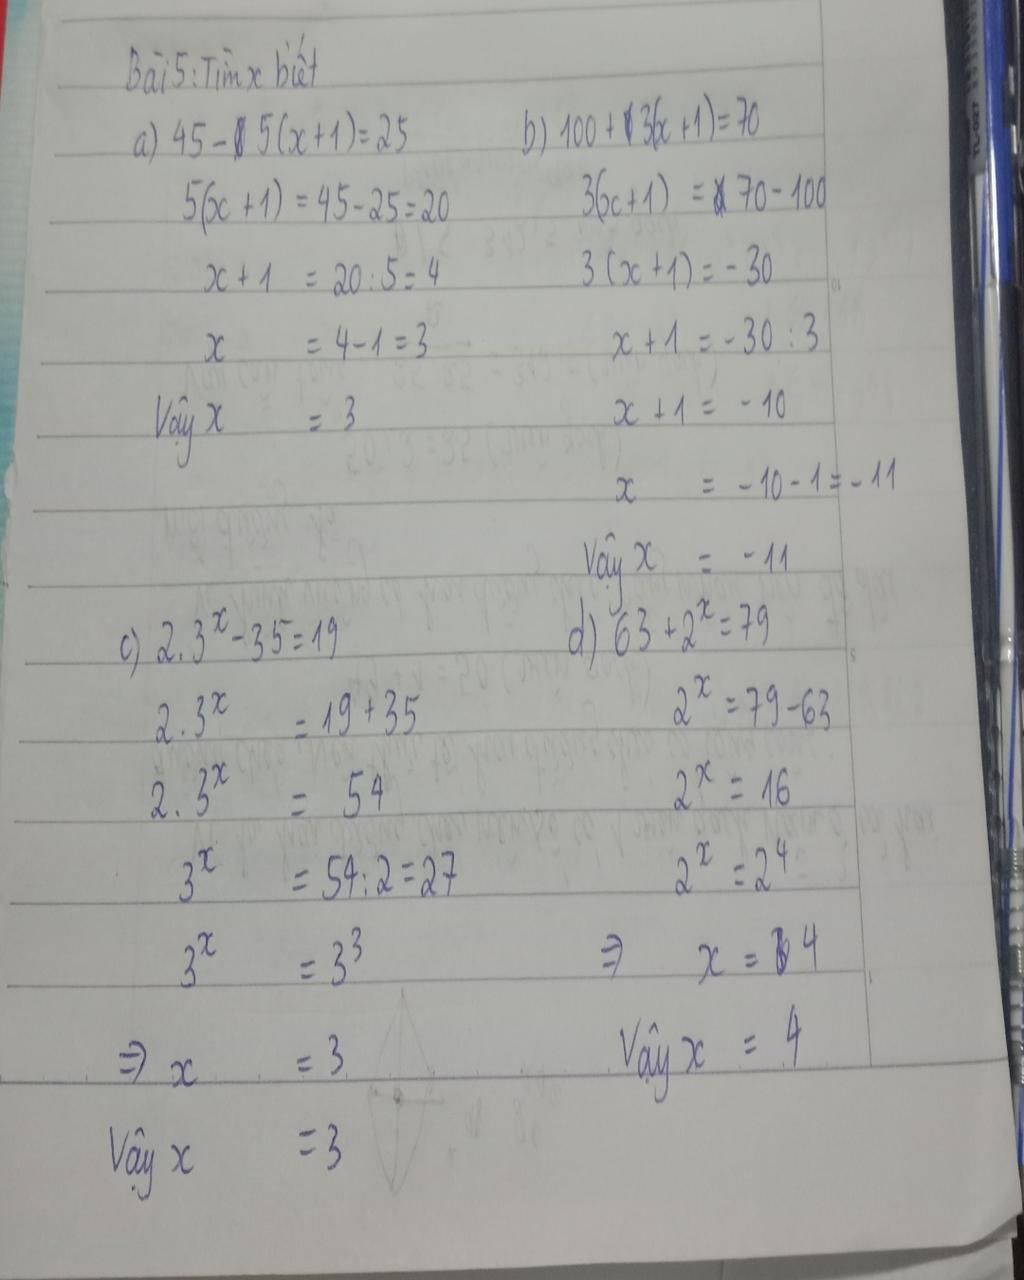 Bài 5: Tìm x biết
a) 45 - 5(x+1) = 25
5(x+1) = 45 - 25 = 20
x + 1 = 20 : 5 = 4
x = 4 - 1 = 3
Vậy x = 3
b) 100 + 3(x+1) = 70
3(x+1) = 70 - 100
3(x+1) = -30
x + 1 = -30 : 3
x + 1 = -10
x = -10 - 1 = -11
Vậy x = -11
c) 2.3^x - 35 = 19
2.3^x = 19 + 35
2.3^x = 54
3^x = 54 : 2 = 27
3^x = 3^3
⇒ x = 3
Vậy x = 3
d) 63 + 2^x = 79
2^x = 79 - 63
2^x = 16
2^x = 2^4
⇒ x = 4
Vậy x = 4